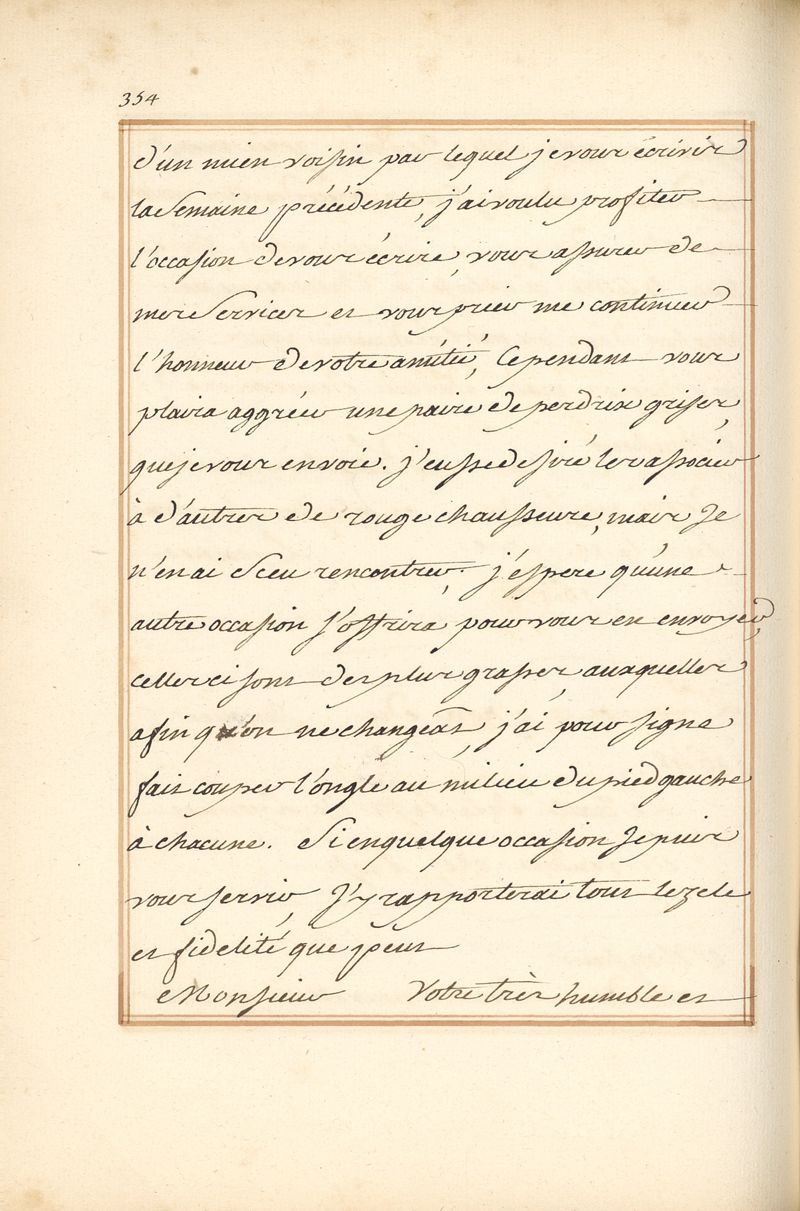 354
d'un mien voisin par lequel je vous écrivis
la Semaine précédente, j'ai voulu profiter
l'occasion de vous écrire, vous assurer de
mes Services et vous prier me continuer
l'honneur de votre amitié, Cependant vous
plaira aggréer une paire de perdrix grises,
que je vous envoie. j'eusse desiré les associer
à d'autres de rouge chausseure, mais Je
n'en ai Sceu rencontrer. j'espere qu'une
autre occasion s'offrira, pour vous en envoyer,
celles ci sont des plus grasses, auxquelles
afin qu'on ne changeât, j'ai pour signe
fait couper l'ongle au milieu du pied gauche
à chacune. Si en quelque occasion Je puis
vous servir, J'y rapporterai tout le zele
et fidelité que peut
Monsieur Votre très humble et